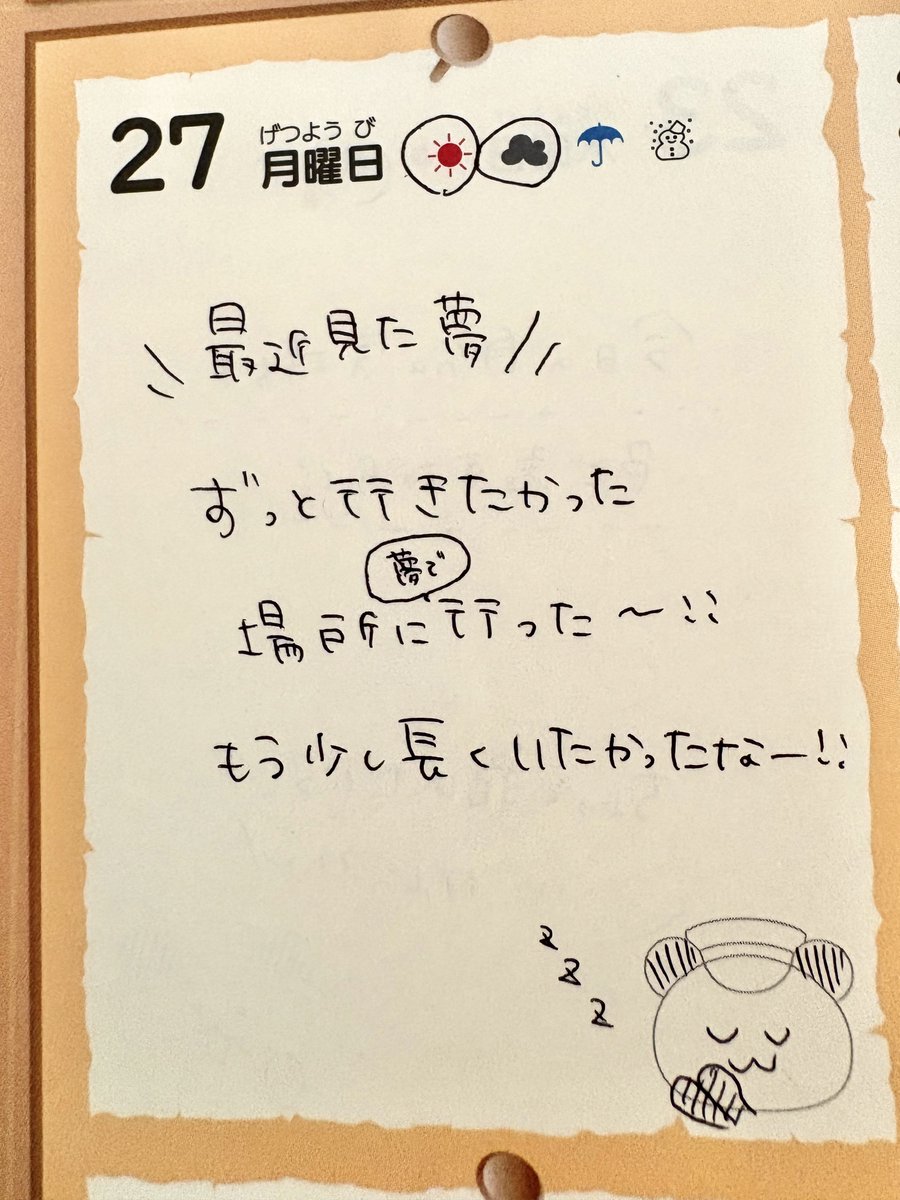 27 げつようび
月曜日
\\最近見た夢//
ずっと行きたかった
夢で
場所に行った〜!!
もう少し長くいたかったなー!!
z
z
z